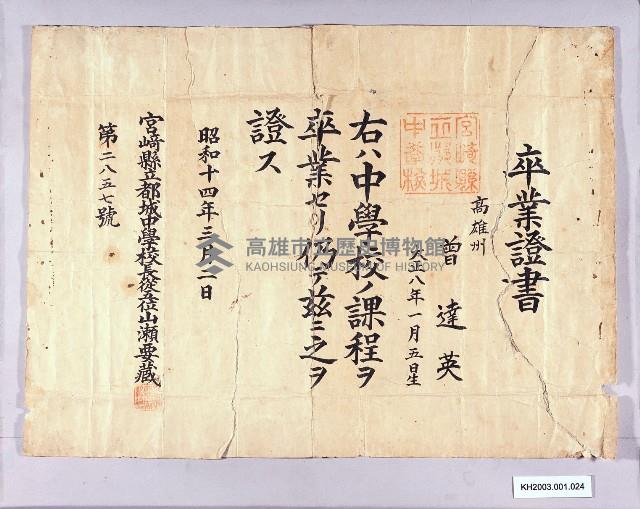 卒業證書
宮崎縣
立都城
中學校
高雄州
曾達英
大正八年一月五日生
右ハ中學校ノ課程ヲ
卒業セリ仍テ茲ニ之ヲ
證ス
昭和十四年三月二日
宮崎縣立都城中學校長從五位山瀬要藏
第二八五七號
高雄市立歷史博物館
KAOHSIUNG MUSEUM OF HISTORY
KH2003.001.024